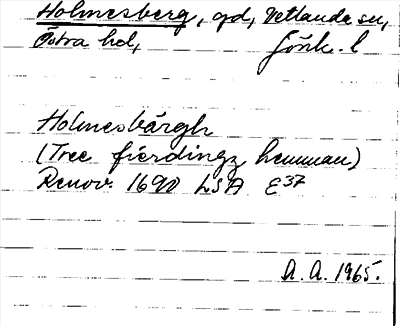 Holmesberg, gd, Vetlanda sn,
Östra hd, Jönk. l
Holmesbärgh
(Tree fierdingz hemman)
Renov. 1690 LSA E37
A. A. 1965.